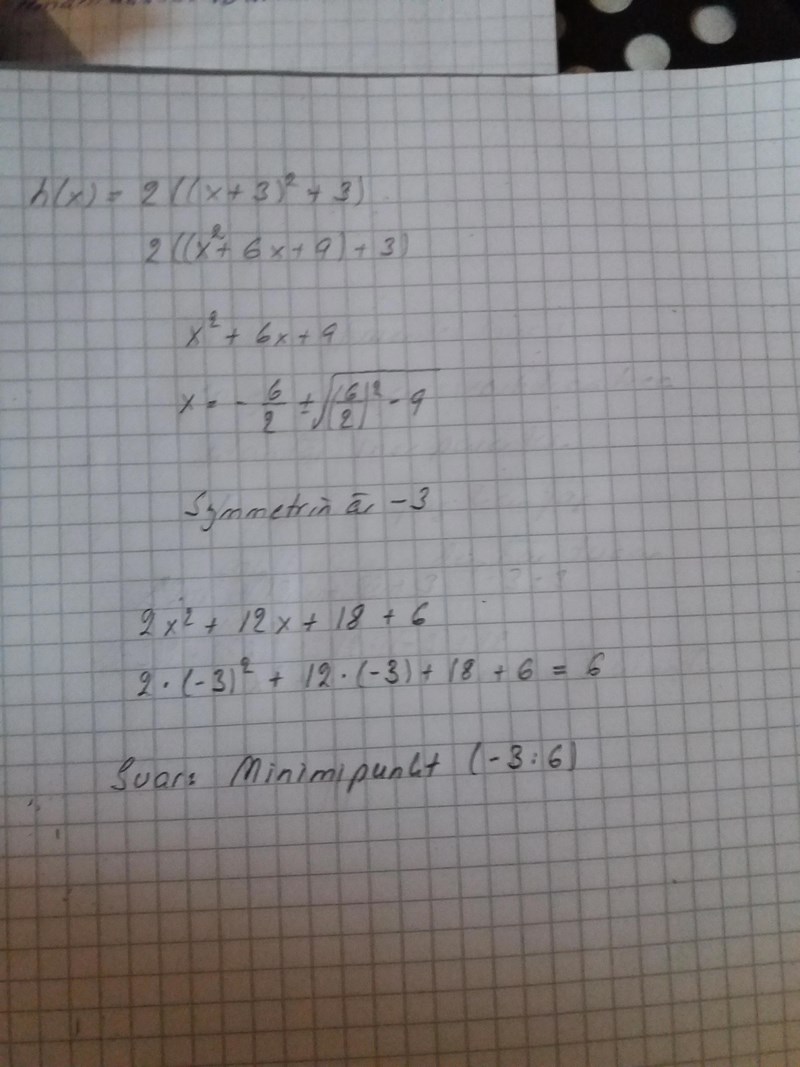 h(x) = 2((x+3)² + 3)
2((x² + 6x + 9) + 3)
x² + 6x + 9
x = - 6/2 ± √(6/2)² - 9
Symmetrin är -3
2x² + 12x + 18 + 6
2·(-3)² + 12·(-3) + 18 + 6 = 6
Svar: Minimipunkt (-3:6)